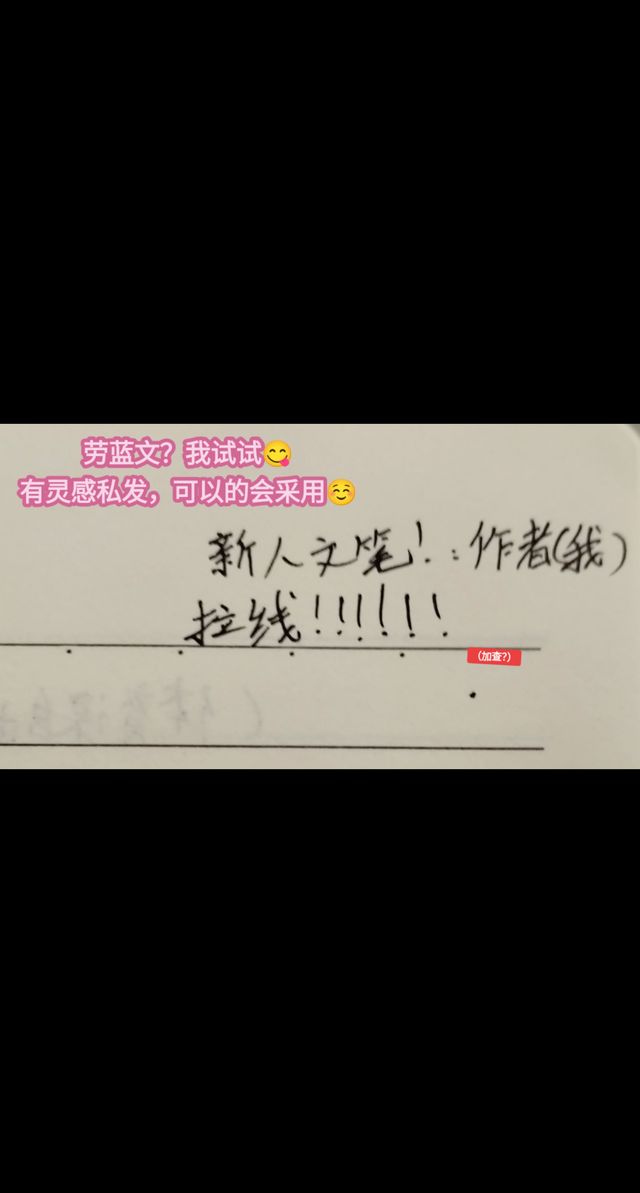 劳蓝文？我试试😋
有灵感私发，可以的会采用☺️
新人文笔！：作者(我)
拉线！！！！！！
（加查?）